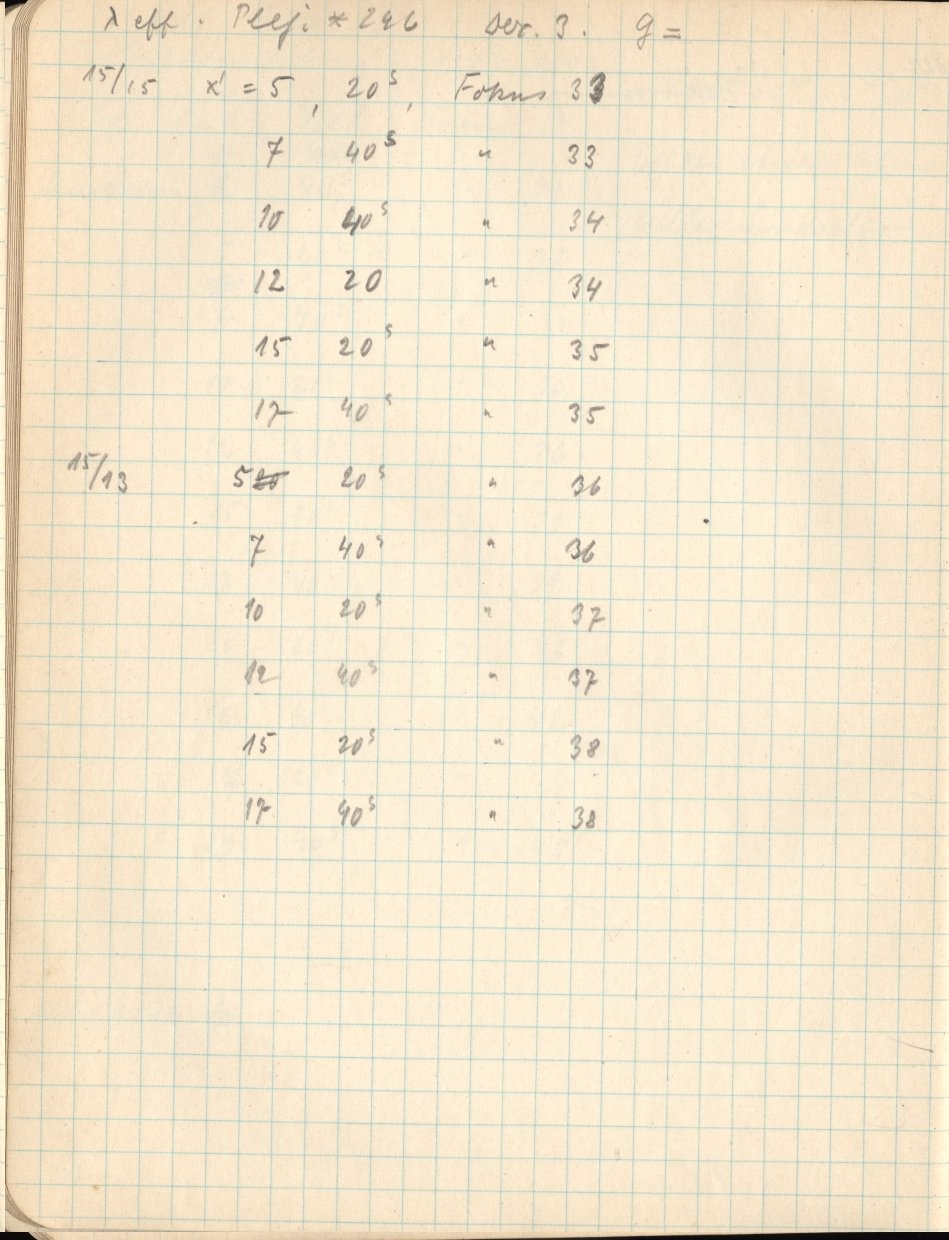 λ eff. Pleji * 246 Ser. 3. g =
15/15 x' = 5, 20ˢ, Fokus 33
7 40ˢ " 33
10 40ˢ " 34
12 20 " 34
15 20ˢ " 35
17 40ˢ " 35
15/13 5 20ˢ " 36
7 40ˢ " 36
10 20ˢ " 37
12 40ˢ " 37
15 20ˢ " 38
17 40ˢ " 38